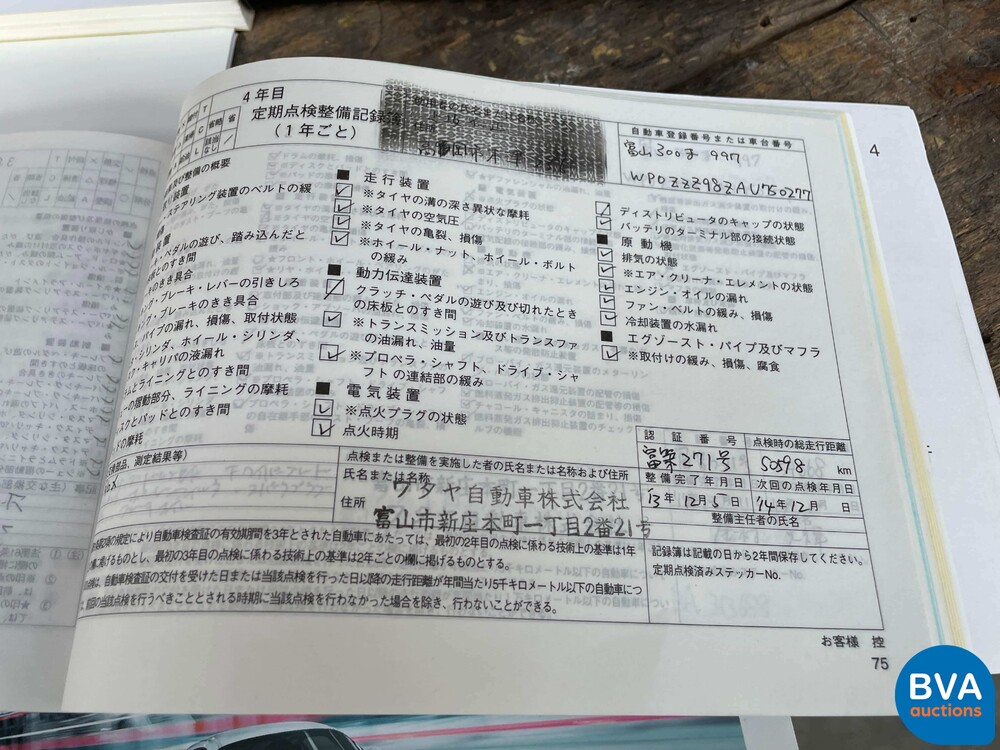 4年目
定期点検整備記録簿
(1年ごと)
自動車登録番号または車台番号
富山300ま997
WP0ZZZ98ZAU750277
4
及び整備の概要
ステアリング装置のベルトの緩
ペダルの遊び、踏み込んだと
とのすき間
きき具合
ブレーキ・レバーの引きしろ
ブレーキのきき具合
パイプの漏れ、損傷、取付状態
シリンダ、ホイール・シリンダ、
キャリパの液漏れ
とライニングとのすき間
の摺動部分、ライニングの摩耗
スクとパッドとのすき間
ドの摩耗
■ 走行装置
※タイヤの溝の深さ異状な摩耗
※タイヤの空気圧
※タイヤの亀裂、損傷
※ホイール・ナット、ホイール・ボルト
の緩み
■ 動力伝達装置
クラッチ・ペダルの遊び及び切れたとき
の床板とのすき間
※トランスミッション及びトランスファ
の油漏れ、油量
※プロペラ・シャフト、ドライブ・シャ
フトの連結部の緩み
■ 電気装置
※点火プラグの状態
点火時期
ディストリビュータのキャップの状態
バッテリのターミナル部の接続状態
■ 原動機
排気の状態
※エア・クリーナ・エレメントの状態
エンジン・オイルの漏れ
ファン・ベルトの緩み、損傷
冷却装置の水漏れ
■ エグゾースト・パイプ及びマフラ
※取付けの緩み、損傷、腐食
部品、測定結果等)
点検または整備を実施した者の氏名または名称および住所
氏名または名称
ワタヤ自動車株式会社
住所
富山市新庄本町一丁目2番21号
認証番号 点検時の総走行距離
271号 50598 km
整備完了年月日 次回の点検年月日
'13年 12月 5日 '14年 12月 日
整備主任者の氏名
の規定により自動車検査証の有効期間を3年とされた自動車にあたっては、最初の2年目の点検に係わる技術上の基準は1年
に掲げるものとし、最初の3年目の点検に係わる技術上の基準は2年ごとの欄に掲げるものとする。
は、自動車検査証の交付を受けた日または当該点検を行った日以降の走行距離が年間当り5千キロメートル以下の自動車につ
前回の当該点検を行うべきこととされる時期に当該点検を行わなかった場合を除き、行わないことができる。
記録簿は記載の日から2年間保存してください。
定期点検済みステッカーNo.
お客様 控
75
BVA
auctions